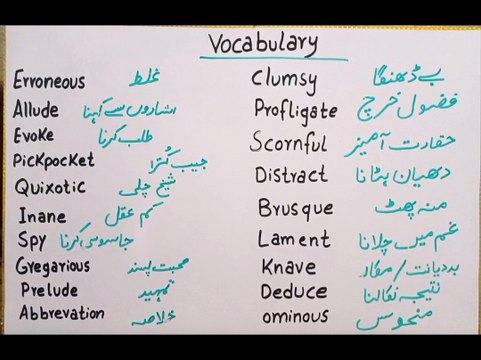 Vocabulary
Erroneous غلط
Allude اشاروں سے کہنا
Evoke طلب کرنا
Pickpocket جیب کترا
Quixotic شیخ چلی
Inane کم عقل
Spy جاسوسی کرنا
Gregarious صحبت پسند
Prelude تمہید
Abbrevation خلاصہ
Clumsy بے ڈھنگا
Profligate فضول خرچ
Scornful حقارت آمیز
Distract دھیان ہٹانا
Brusque منہ پھٹ
Lament غم میں چلانا
Knave بددیانت / مکار
Deduce نتیجہ نکالنا
ominous منحوس